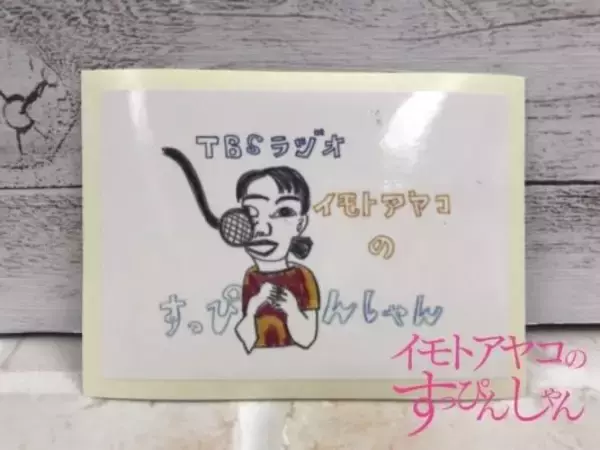 TBSラジオ
イモトアヤコ
の
すっぴんしゃん
イモトアヤコの
すっぴんしゃん